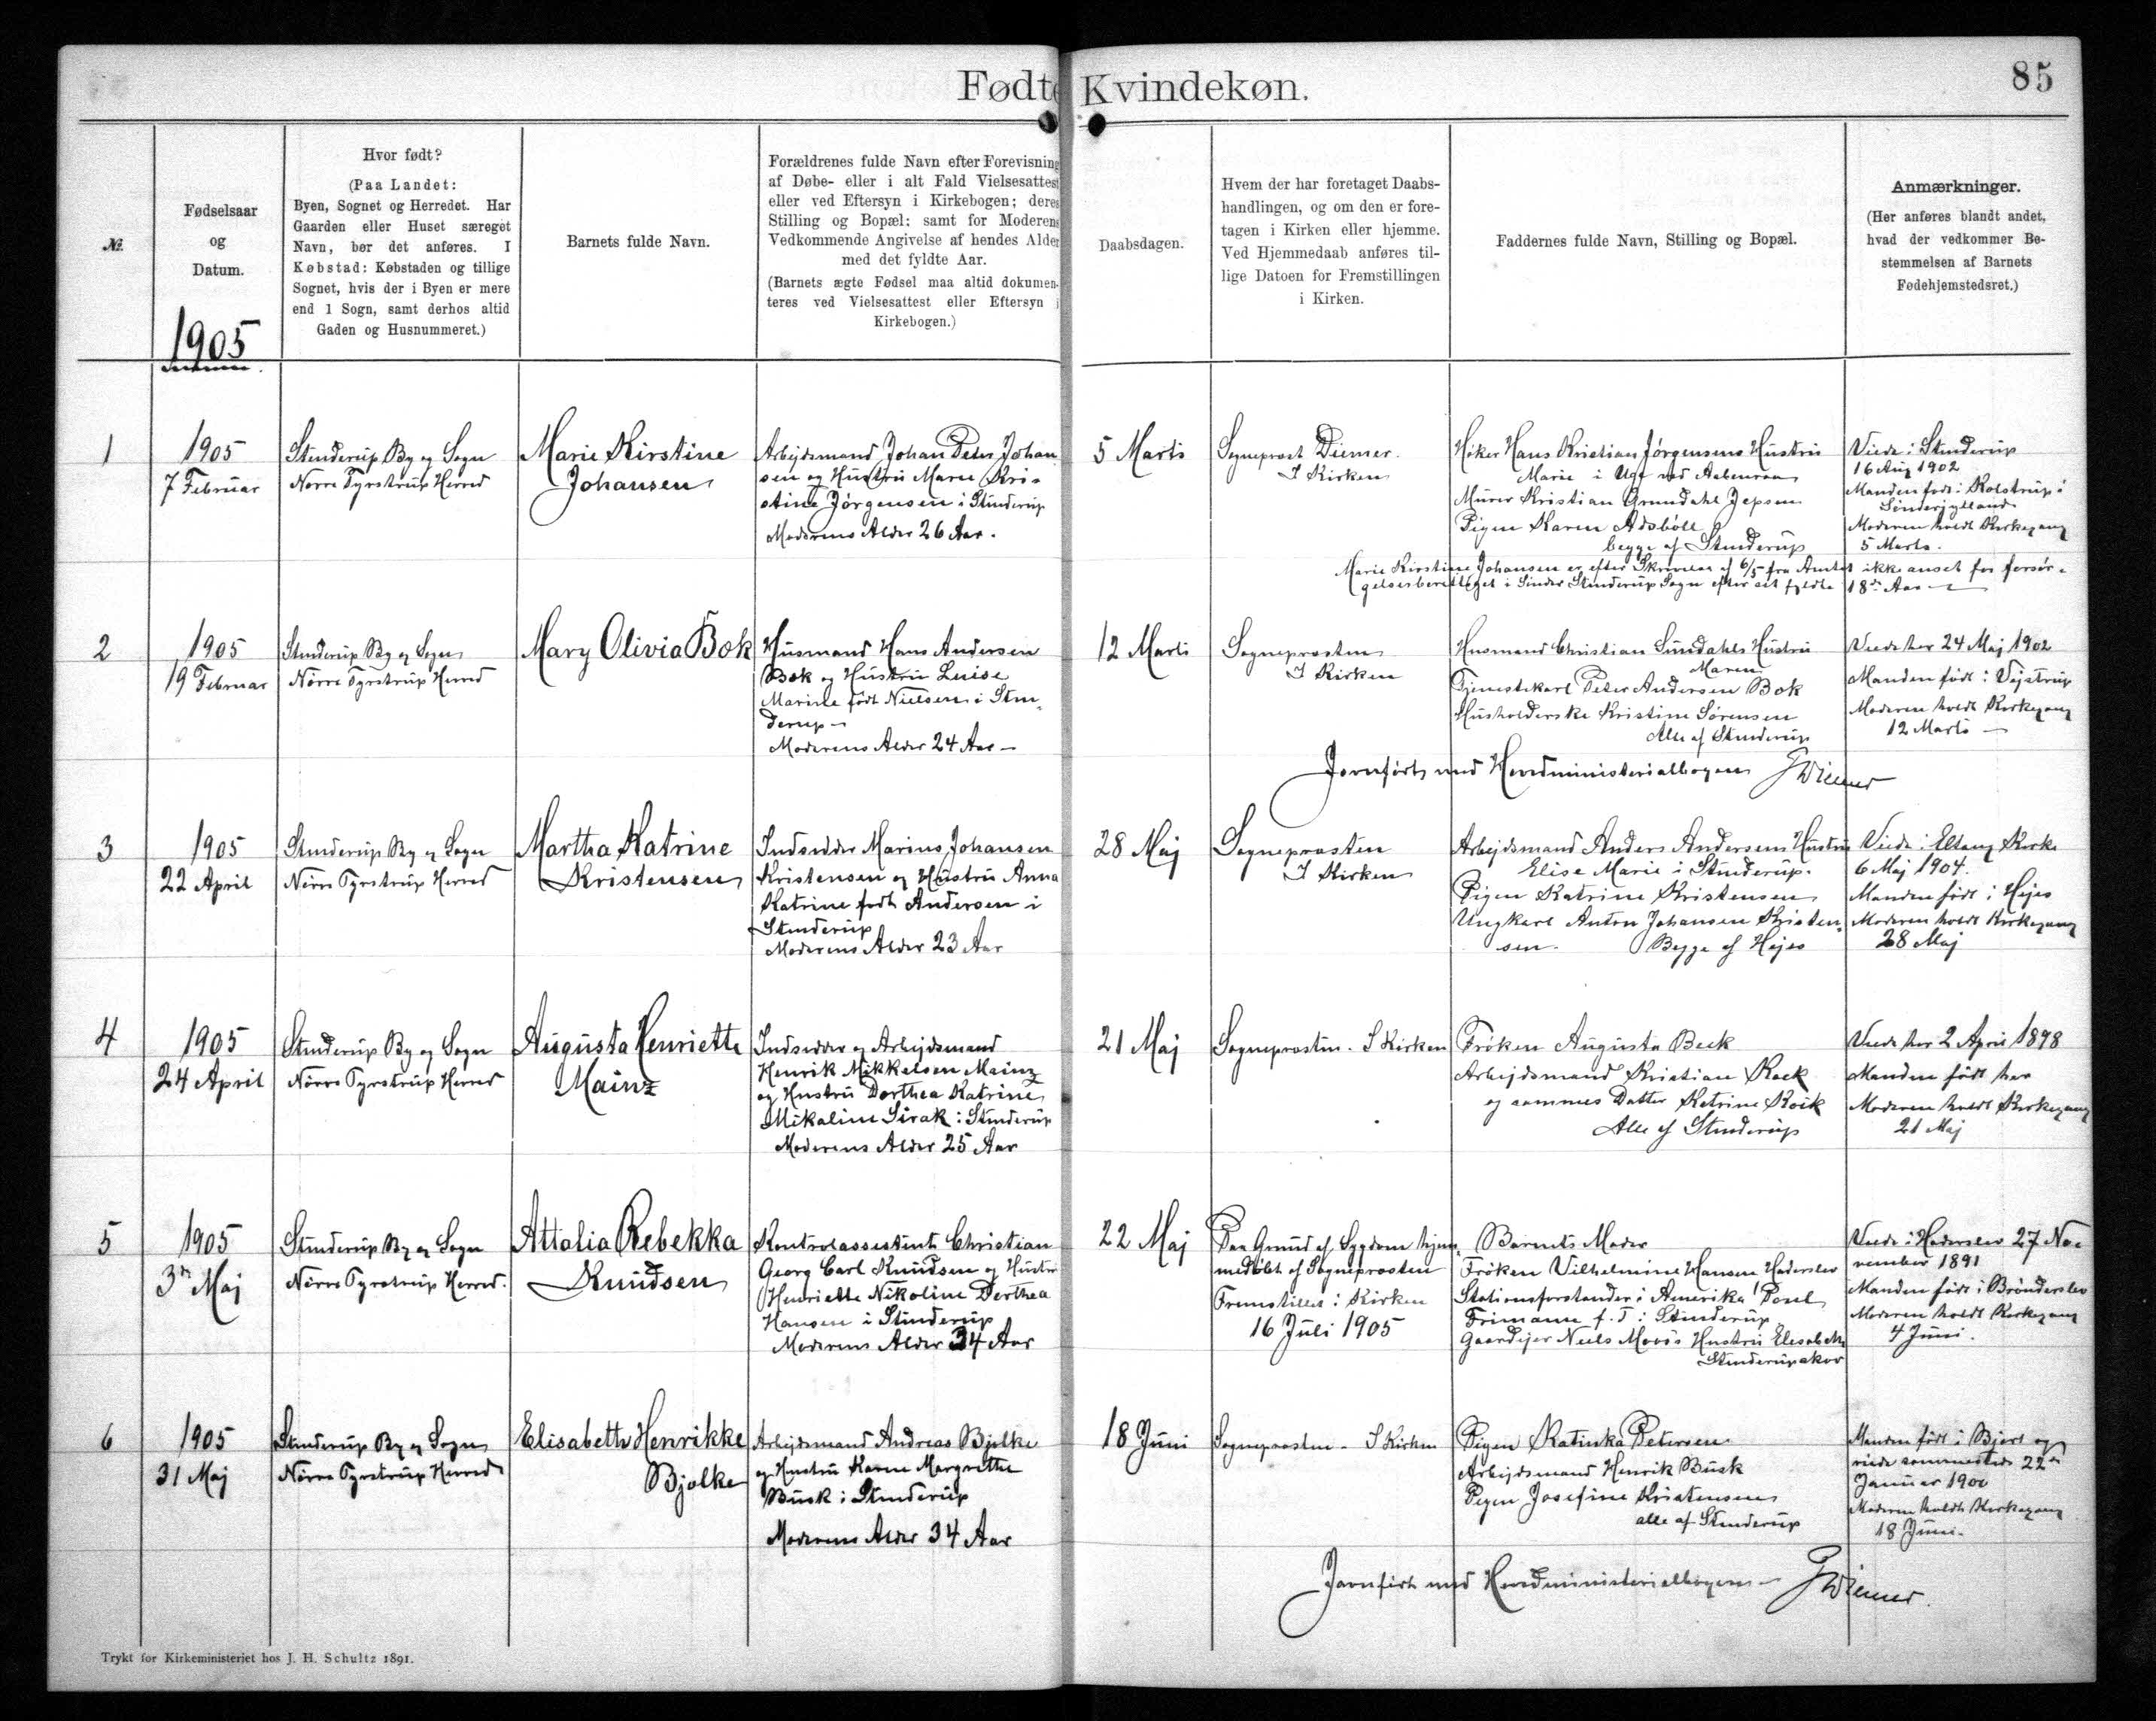 Fødte Kvindekøn.
85
№
Fødselsaar
og
Datum.
1905
Hvor født?
(Paa Landet:
Byen, Sognet og Herredet. Har
Gaarden eller Huset særeget
Navn, bør det anføres. I
Købstad: Købstaden og tillige
Sognet, hvis der i Byen er mere
end 1 Sogn, samt derhos altid
Gaden og Husnummeret.)
Barnets fulde Navn.
Forældrenes fulde Navn efter Forevisning
af Døbe- eller i alt Fald Vielsesattest
eller ved Eftersyn i Kirkebogen; deres
Stilling og Bopæl; samt for Moderens
Vedkommende Angivelse af hendes Alder
med det fyldte Aar.
(Barnets ægte Fødsel maa altid dokumen-
teres ved Vielsesattest eller Eftersyn i
Kirkebogen.)
Daabsdagen.
Hvem der har foretaget Daabs-
handlingen, og om den er fore-
tagen i Kirken eller hjemme.
Ved Hjemmedaab anføres til-
lige Datoen for Fremstillingen
i Kirken.
Faddernes fulde Navn, Stilling og Bopæl.
Anmærkninger.
(Her anføres blandt andet,
hvad der vedkommer Be-
stemmelsen af Barnets
Fødehjemstedsret.)
1
1905
7 Februar
Stenderup By og Sogn
Nørre Tyrstrup Herred
Marie Kirstine
Johansen
Arbejdsmand Johan Peter Johan
sen og Hustru Maren Kri-
stine Jørgensen i Stenderup
Moderens Alder 26 Aar.
5 Marts
Sogneprost Diemer.
I Kirken
Høker Hans Kristian Jørgensens Hustru
Marie i Uge ved Aabenraa
Murer Kristian Grundahl Jepsen
Pigen Karen Adsbøll
begge af Stenderup
Viede i Stenderup
16 Aug 1902
Manden født i Kolstrup i
Sønderjylland
Moderen holdt Kirkegang
5 Marts.
Marie Kirstine Johansen er efter Skrivelse af 6/5 fra Amtet ikke anset for forsør-
gelsesberettiget i Sønder Stenderup Sogn efter det fyldte 18de Aar
2
1905
19 Februar
Stenderup By og Sogn
Nørre Tyrstrup Herred
Mary Olivia Bok
Husmand Hans Andersen
Bok og Hustru Luise
Marine født Nielsen i Sten-
derup
Moderens Alder 24 Aar
12 Marts
Sogneprosten
I Kirken
Husmand Christian Sundahls Hustru
Maren
Tjenestekarl Peter Andersen Bok
Husholderske Kristine Sørensen
Alle af Stenderup
Viede her 24 Maj 1902
Manden født i Vejstrup
Moderen holdt Kirkegang
12 Marts
Jævnført med Hovedministerialbogen Diemer
3
1905
22 April
Stenderup By og Sogn
Nørre Tyrstrup Herred
Martha Katrine
Kristensen
Indsidder Marius Johansen
Kristensen og Hustru Anna
Katrine født Andersen i
Stenderup
Moderens Alder 23 Aar
28 Maj
Sogneprosten
I Kirken
Arbejdsmand Anders Andersens Hustru
Elise Marie i Stenderup.
Pigen Katrine Kristensen
Ungkarl Anton Johansen Kristen-
sen. Begge af Hejls
Viede i Eltang Kirke
6 Maj 1904.
Manden født i Hejls
Moderen holdt Kirkegang
28 Maj
4
1905
24 April
Stenderup By og Sogn
Nørre Tyrstrup Herred
Augusta Henriette
Mainz
Indsidder og Arbejdsmand
Henrik Mikkelsen Mainz
og Hustru Dorthea Katrine
Mikaline Sirak i Stenderup
Moderens Alder 25 Aar
21 Maj
Sogneprosten. I Kirken
Frøken Augusta Beck
Arbejdsmand Kristian Kock
og sammes Datter Katrine Kock
Alle af Stenderup
Viede her 2 April 1898
Manden født her
Moderen holdt Kirkegang
21 Maj
5
1905
3de Maj
Stenderup By og Sogn
Nørre Tyrstrup Herred.
Attalia Rebekka
Knudsen
Kontrolassistent Christian
Georg Carl Knudsen og Hustru
Henriette Nikoline Dorthea
Hansen i Stenderup
Moderens Alder 34 Aar
22 Maj
Paa Grund af Sygdom hjem-
medøbt af Sogneprosten
Fremstillet i Kirken
16 Juli 1905
Barnets Moder
Frøken Vilhelmine Hansen Haderslev
Stationsforstander i Amerika Poul
Frimann f. T. i Stenderup
Gaardejer Niels Hustru Elisabeth
Stenderupskov
Viede i Haderslev 27 No-
vember 1891
Manden født i Brønderslev
Moderen holdt Kirkegang
4 Juni.
6
1905
31 Maj
Stenderup By og Sogn
Nørre Tyrstrup Herred
Elisabeth Henrikke
Bjolke
Arbejdsmand Andreas Bjolke
og Hustru Karen Margrethe
Busk i Stenderup
Moderens Alder 34 Aar
18 Juni
Sogneprosten - I Kirken
Pigen Katinka Petersen
Arbejdsmand Henrik Busk
Pigen Josefine Kristensen
alle af Stenderup
Manden født i Bjert og
viede sammesteds 22de
Januar 1900
Moderen holdt Kirkegang
18 Juni.
Jævnført med Hovedministerialbogen - Diemer.
Trykt for Kirkeministeriet hos J. H. Schultz 1891.